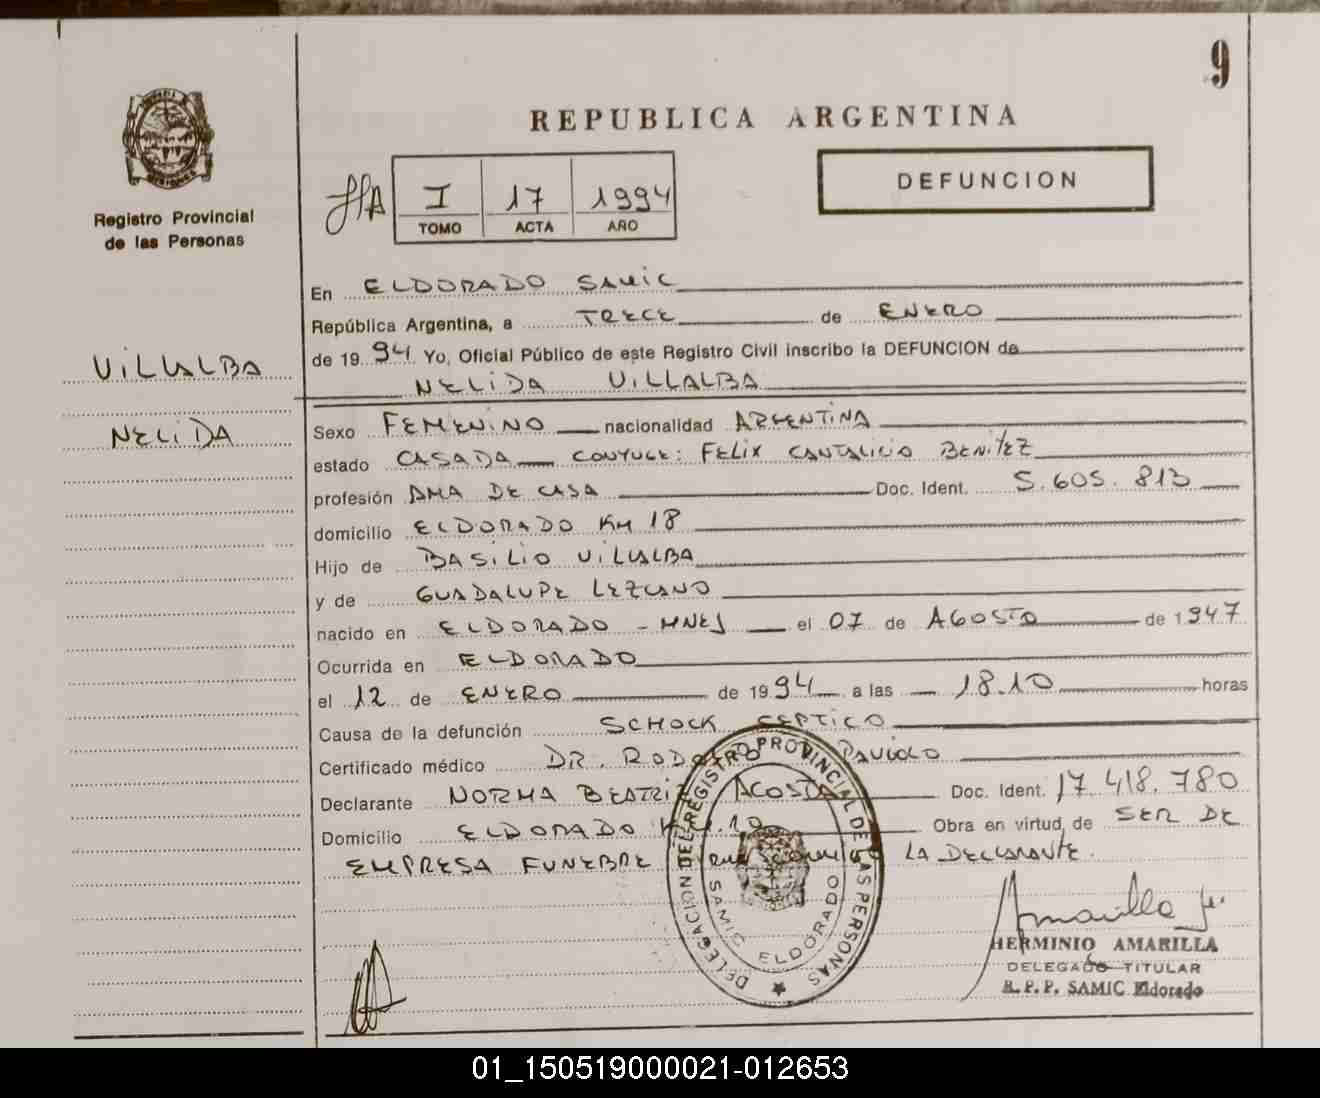 9
REPUBLICA ARGENTINA
DEFUNCION
Registro Provincial
de las Personas
I 17 1994
TOMO ACTA AÑO
VILLALBA
NELIDA
En ELDORADO SAMIC
República Argentina, a TRECE de ENERO
de 1994 Yo, Oficial Público de este Registro Civil inscribo la DEFUNCION de
NELIDA VILLALBA
Sexo FEMENINO nacionalidad ARGENTINA
estado CASADA CONYUGE: FELIX CANTALICIO BENITEZ
profesión AMA DE CASA Doc. Ident. 5.605.813
domicilio ELDORADO KM 18
Hijo de BASILIO VILLALBA
y de GUADALUPE LEZCANO
nacido en ELDORADO - MNES el 07 de AGOSTO de 1947
Ocurrida en ELDORADO
el 12 de ENERO de 1994 a las 18.10 horas
Causa de la defunción SCHOCK CEPTICO
Certificado médico DR. RODOLFO
Declarante NORMA BEATRIZ ACOSTA Doc. Ident. 17.418.780
Domicilio ELDORADO KM.10 Obra en virtud de SER DE
EMPRESA FUNEBRE LA DECLARANTE.
DELEGACION DEL REGISTRO PROVINCIAL DE LAS PERSONAS
SAMIC ELDORADO
Amarilla
HERMINIO AMARILLA
DELEGADO TITULAR
R.P.P. SAMIC Eldorado
01_150519000021-012653